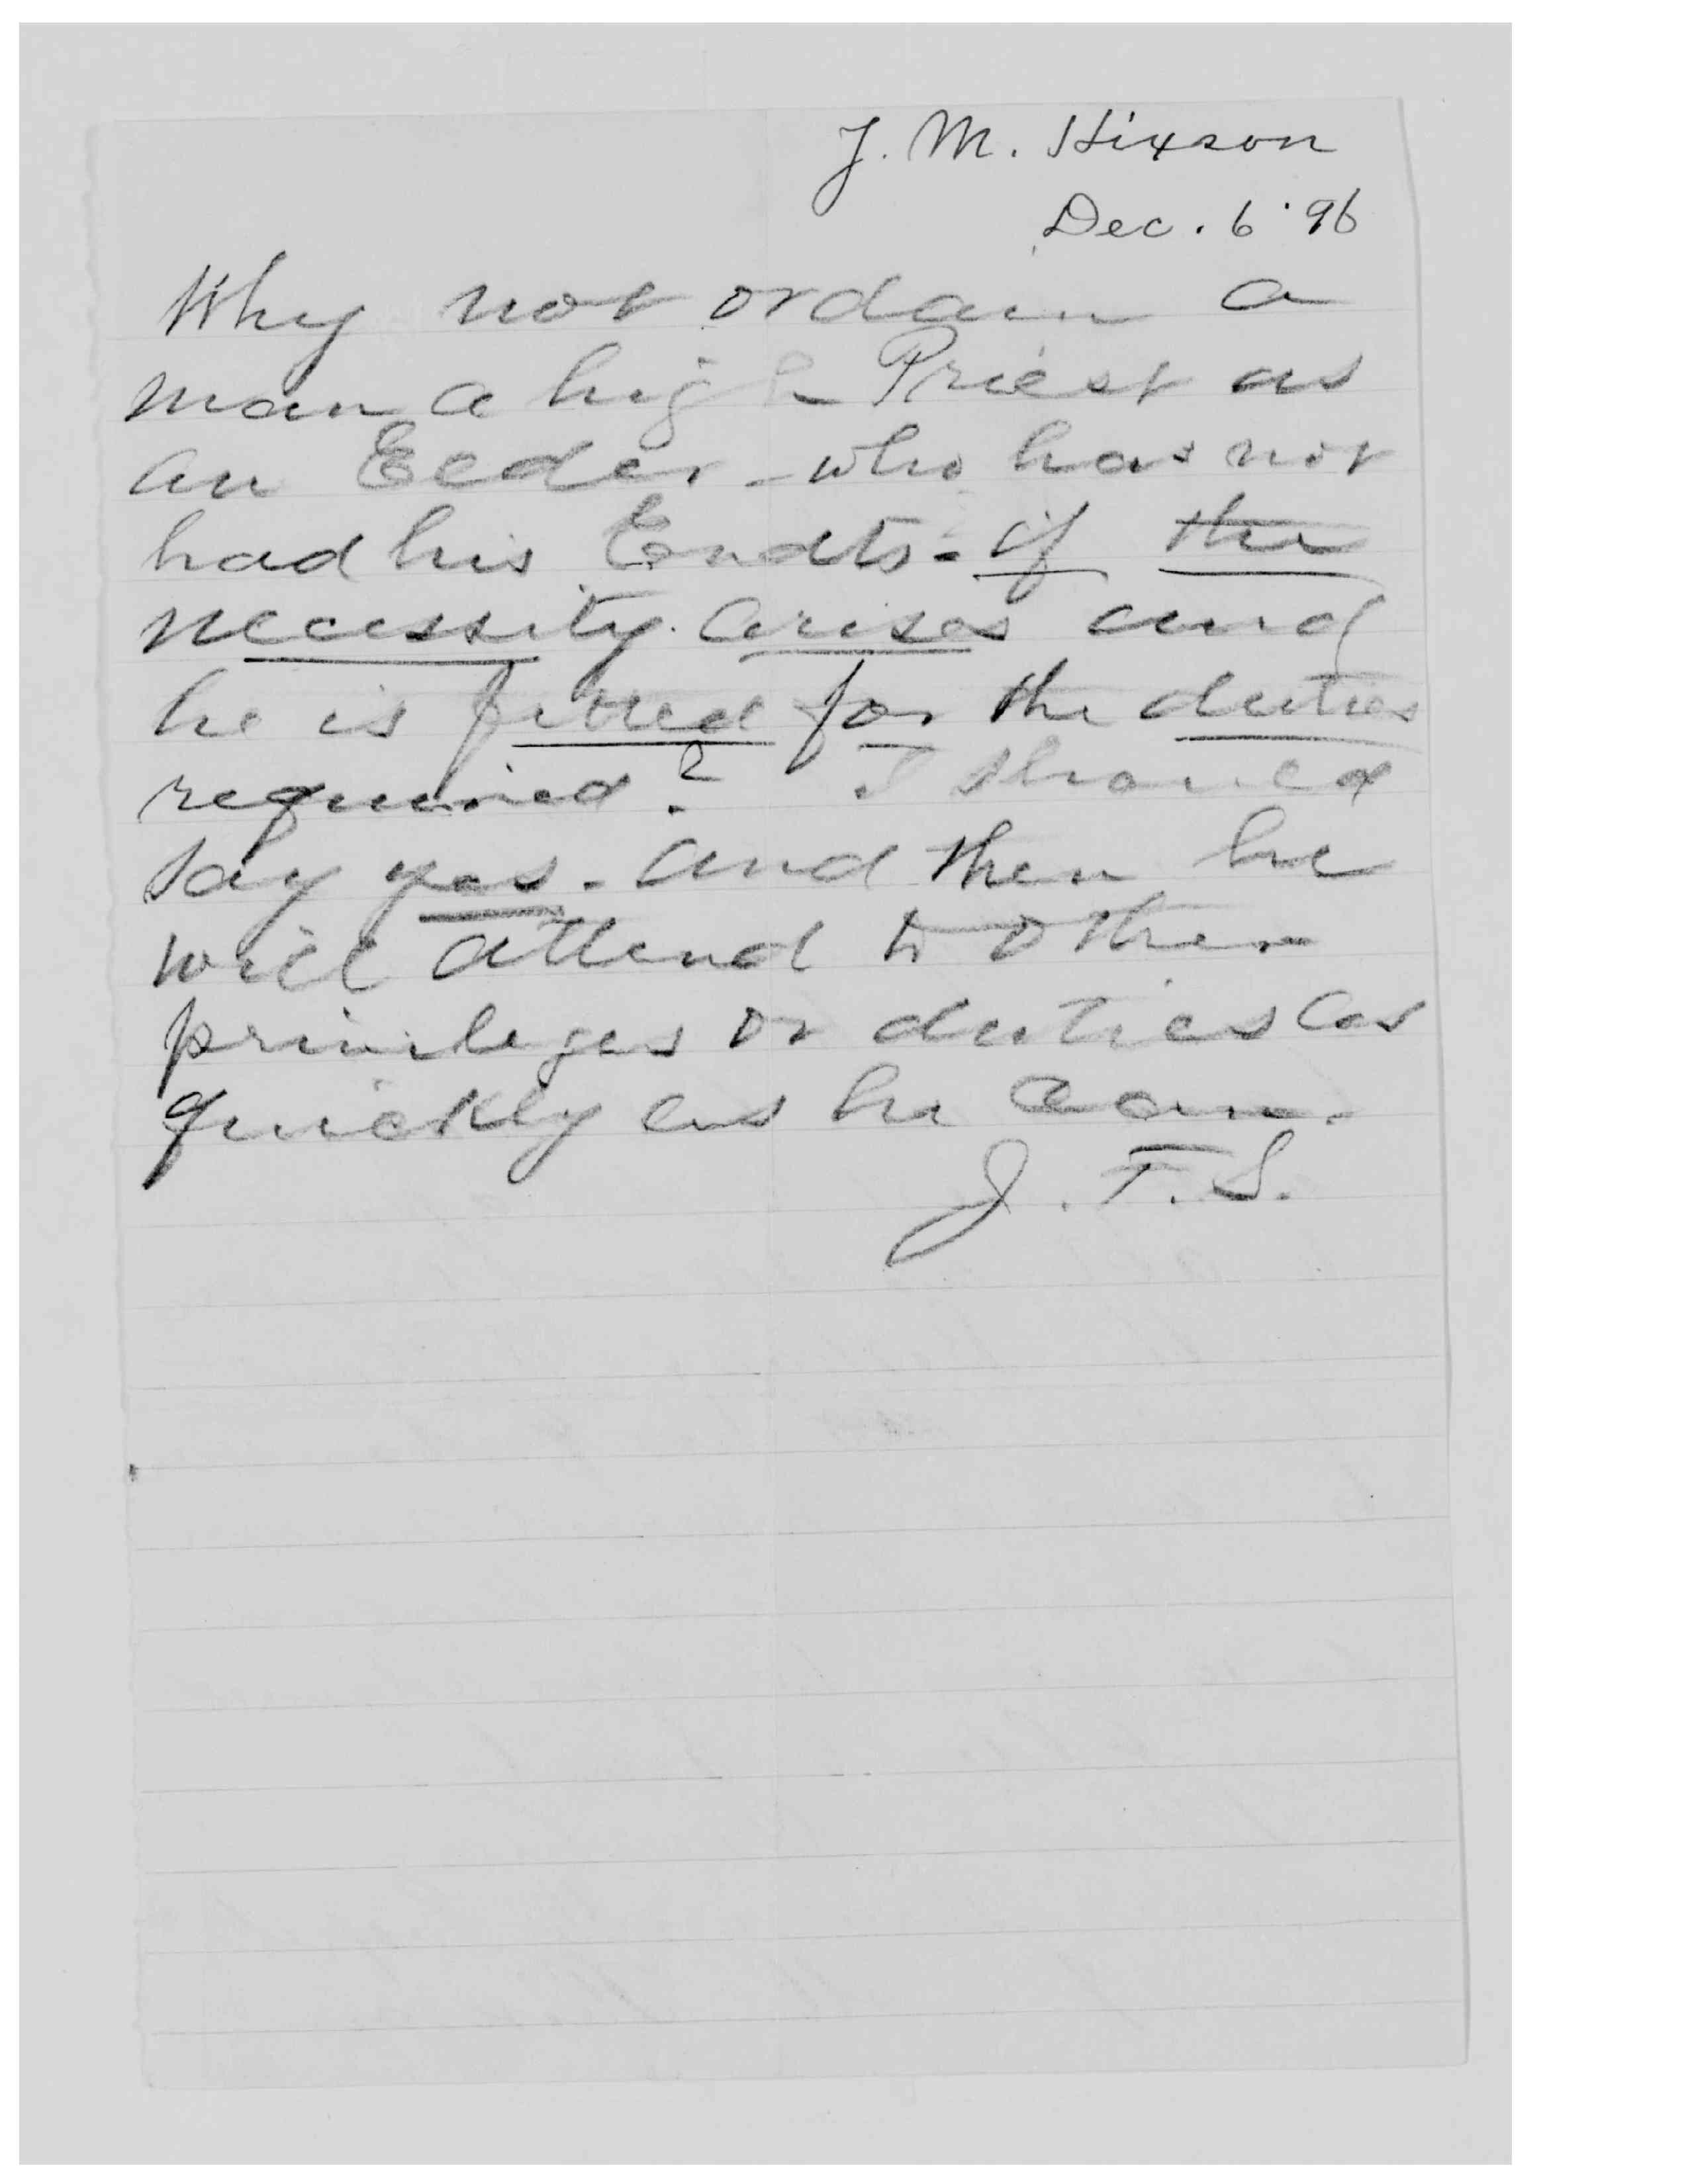 J. M. Hixson
Dec. 6 '96
Why not ordain a
man a high Priest as
an Elder - who has not
had his Endts - if the
necessity arises and
he is fitted for the duties
required? I should
say yes. and then he
will attend to other
privileges or duties as
quickly as he can.
J. F. S.